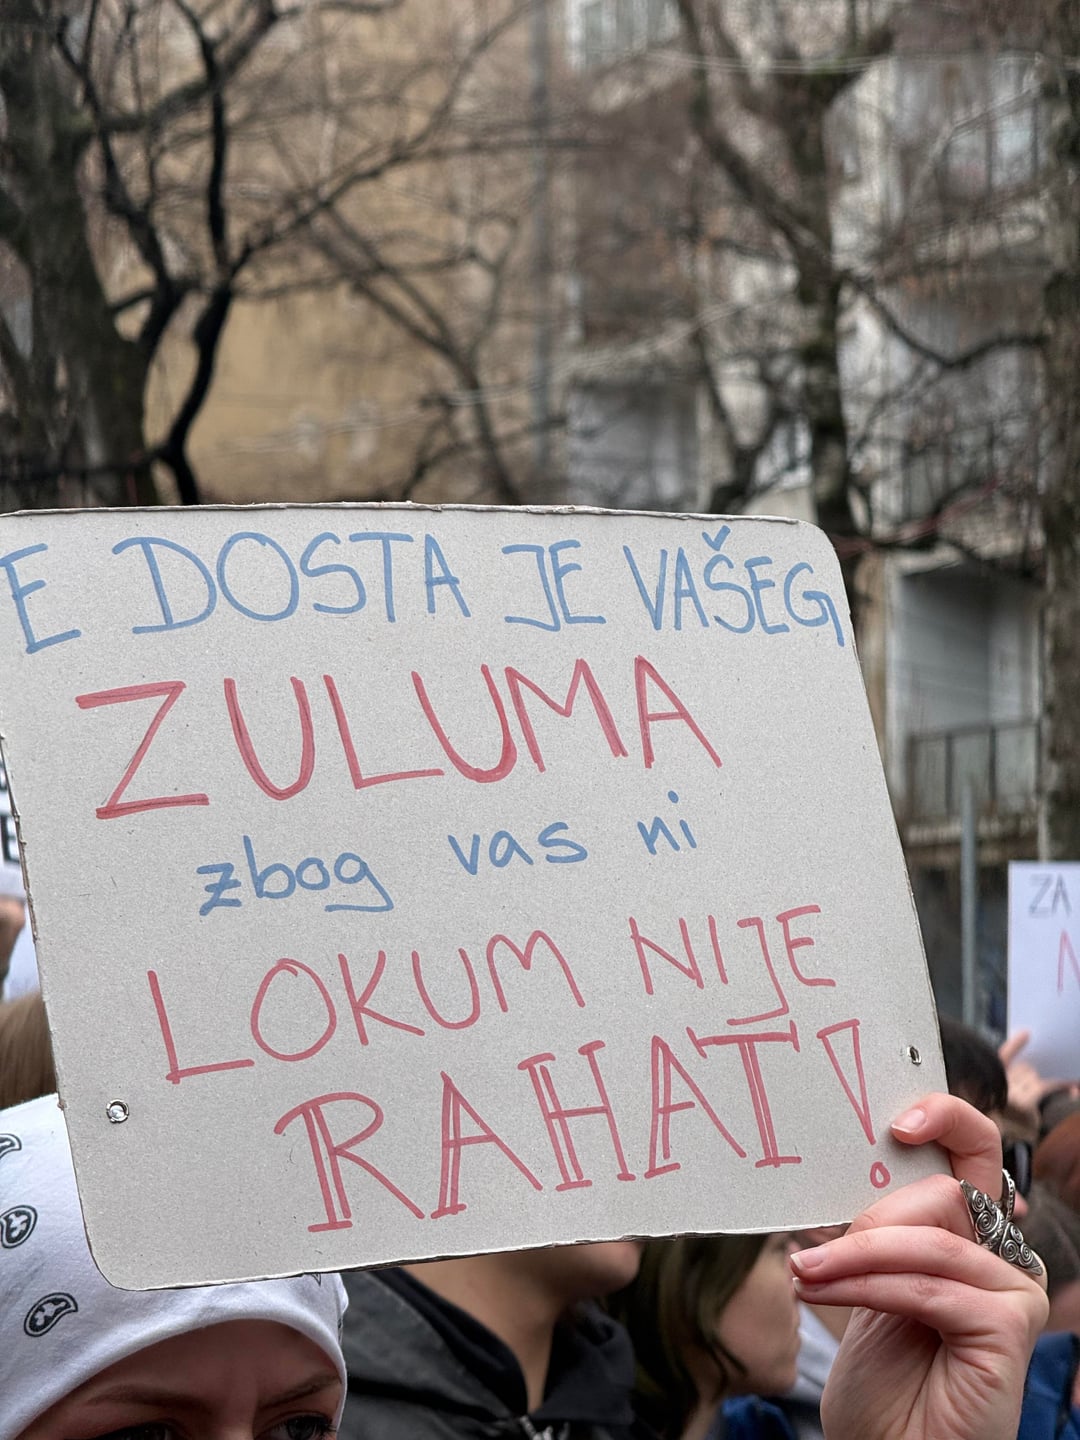 E DOSTA JE VAŠEG
ZULUMA
zbog vas ni
LOKUM NIJE
RAHAT!
ZA